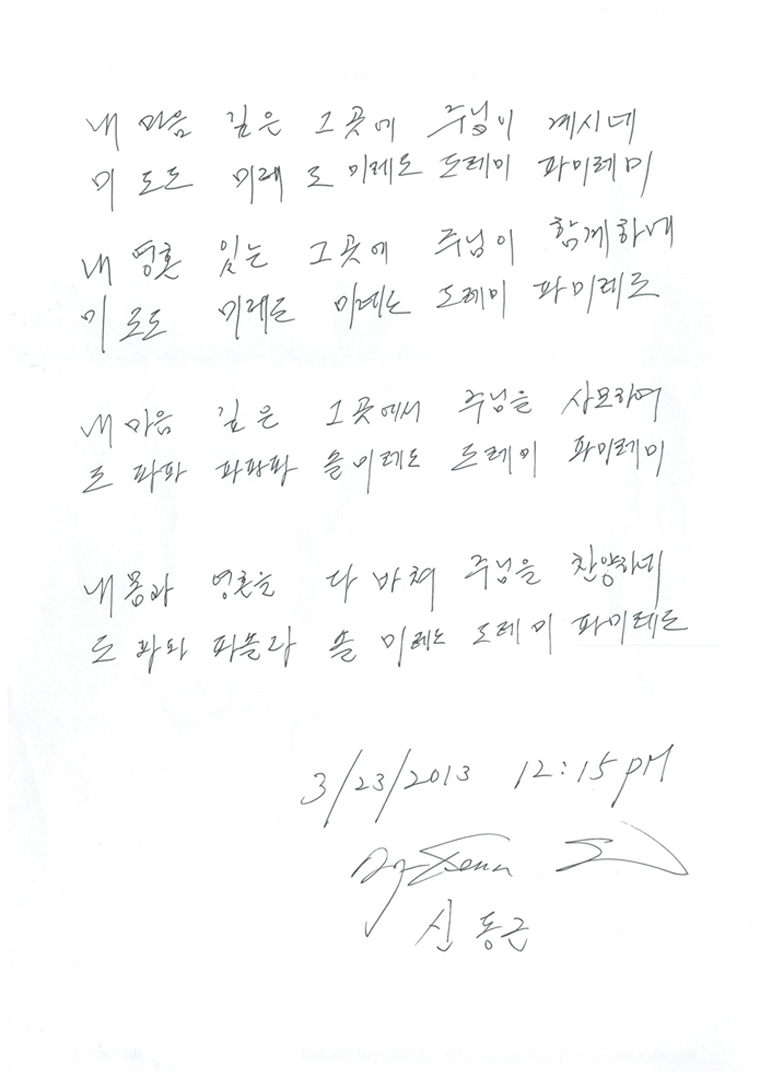 내 마음 깊은 그곳에 주님이 계시네
미 도도 미레 도 미레도 도레미 파미레미
내 영혼 있는 그곳에 주님이 함께하네
미 도도 미레도 미레도 도레미 파미레도
내 마음 깊은 그곳에서 주님을 사모하여
도 파파 파파파 솔미레도 도레미 파미레미
내 몸과 영혼을 다 바쳐 주님을 찬양하네
도 파파 파솔라 솔 미레도 도레미 파미레도
3/23/2013 12:15 PM
신동근